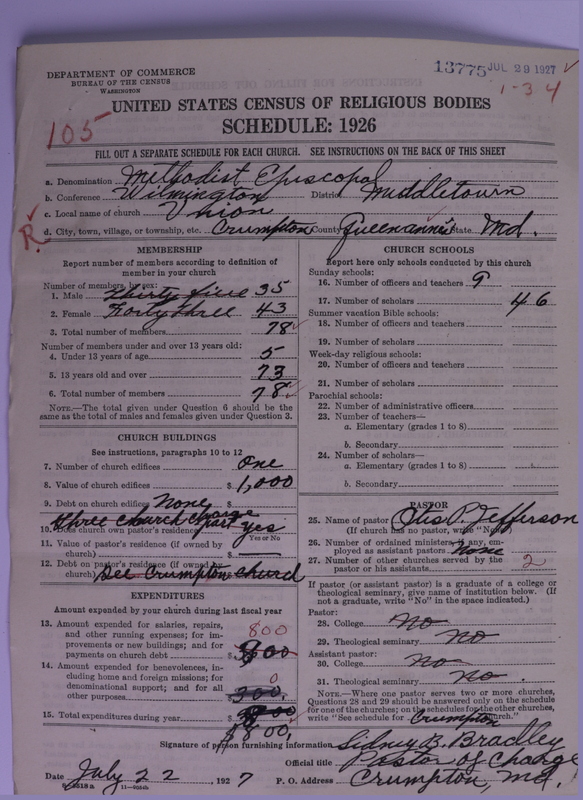 DEPARTMENT OF COMMERCE
BUREAU OF THE CENSUS
WASHINGTON
13775 JUL 29 1927
1-34
105
UNITED STATES CENSUS OF RELIGIOUS BODIES
SCHEDULE: 1926
FILL OUT A SEPARATE SCHEDULE FOR EACH CHURCH. SEE INSTRUCTIONS ON THE BACK OF THIS SHEET
a. Denomination Methodist Episcopal
b. Conference Wilmington District Middletown
c. Local name of church Union
R
d. City, town, village, or township, etc. Crumpton County Queen anne's State Md.
MEMBERSHIP
Report number of members according to definition of member in your church
Number of members by sex:
1. Male Thirty five 35
2. Female Forty three 43
3. Total number of members 78
Number of members under and over 13 years old:
4. Under 13 years of age 5
5. 13 years old and over 73
6. Total number of members 78
NOTE.—The total given under Question 6 should be the same as the total of males and females given under Question 3.
CHURCH BUILDINGS
See instructions, paragraphs 10 to 12
7. Number of church edifices one
8. Value of church edifices $ 1,000
9. Debt on church edifices None $
Three church charge
10. Does church own pastor's residence? part yes
Yes or No
11. Value of pastor's residence (if owned by church) $
12. Debt on pastor's residence (if owned by church) See Crumpton church
EXPENDITURES
Amount expended by your church during last fiscal year
13. Amount expended for salaries, repairs, and other running expenses; for improvements or new buildings; and for payments on church debt 800 $ 800
14. Amount expended for benevolences, including home and foreign missions; for denominational support; and for all other purposes 0 300.
15. Total expenditures during year $
$800,
CHURCH SCHOOLS
Report here only schools conducted by this church
Sunday schools:
16. Number of officers and teachers 9
17. Number of scholars 46
Summer vacation Bible schools:
18. Number of officers and teachers
19. Number of scholars
Week-day religious schools:
20. Number of officers and teachers
21. Number of scholars
Parochial schools:
22. Number of administrative officers
23. Number of teachers—
a. Elementary (grades 1 to 8)
b. Secondary
24. Number of scholars—
a. Elementary (grades 1 to 8)
b. Secondary
PASTOR
25. Name of pastor Otis P. Jefferson
(If church has no pastor, write "No")
26. Number of ordained ministers, if any, employed as assistant pastors none
27. Number of other churches served by the pastor or his assistants 2
If pastor (or assistant pastor) is a graduate of a college or theological seminary, give name of institution below. (If not a graduate, write "No" in the space indicated.)
Pastor:
28. College No
29. Theological seminary No
Assistant pastor:
30. College No
31. Theological seminary No.
NOTE.—Where one pastor serves two or more churches, Questions 28 and 29 should be answered only on the schedule for one of the churches; on the schedules for the other churches, write "See schedule for Crumpton church."
Signature of person furnishing information Sidney B. Bradley
Official title Pastor of Charge
Date July 22, 1927 P. O. Address Crumpton, Md.